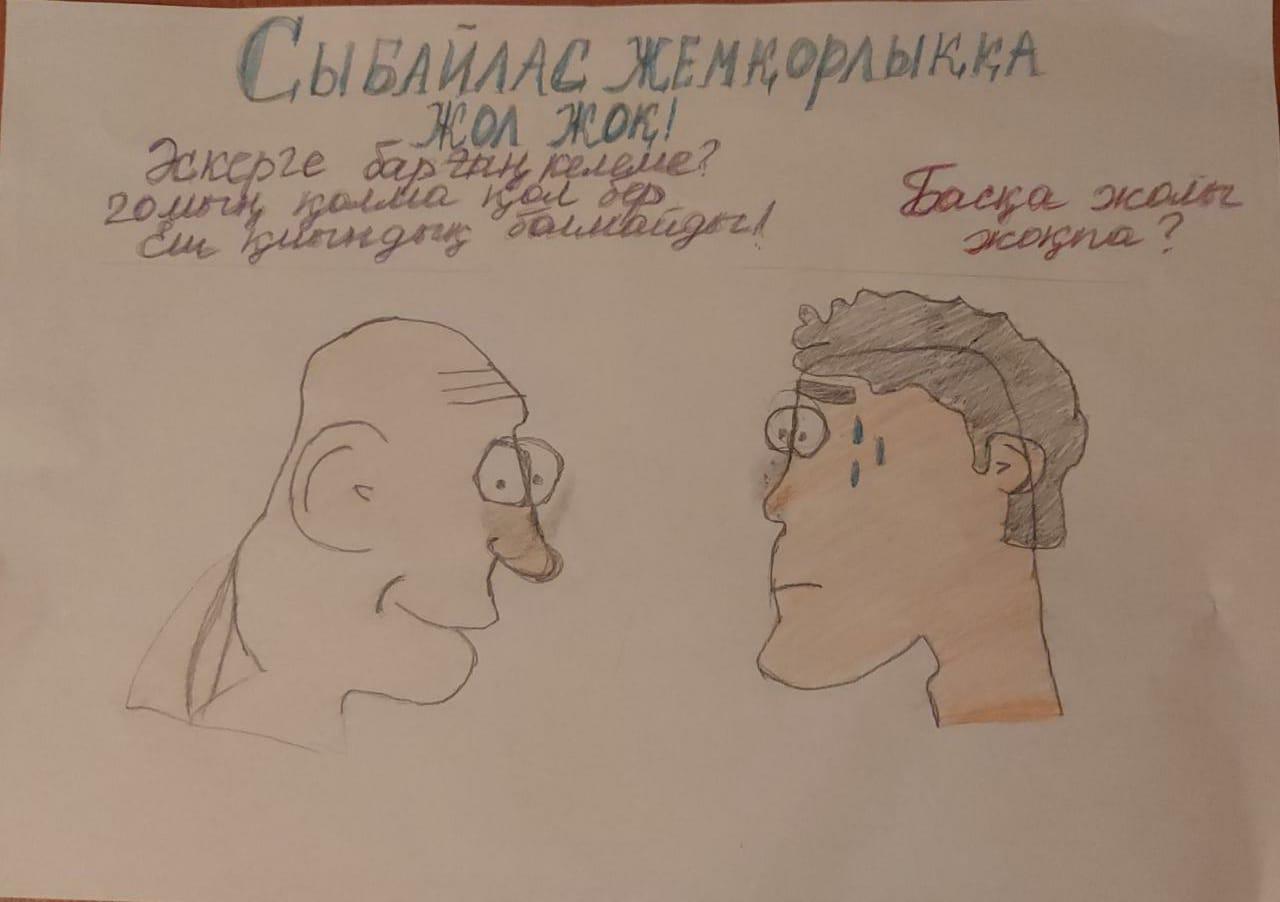 СЫБАЙЛАС ЖЕМҚОРЛЫҚҚА
ЖОЛ ЖОҚ!
Әскерге барғың келеме?
20мың қолма қол бер
Еш қиындық болмайды!
Басқа жолы
жоқпа?